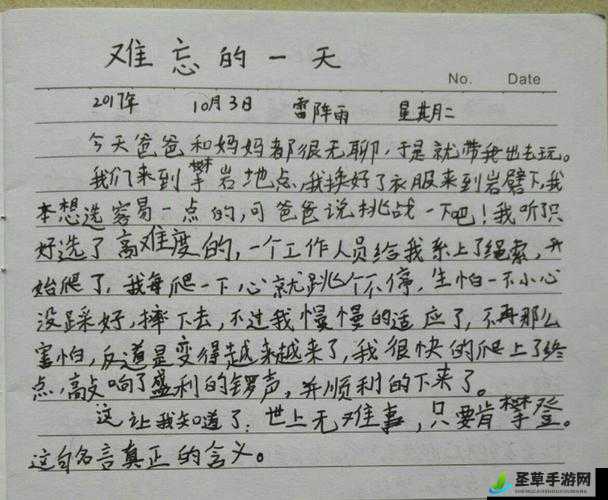 难忘的一天
No. Date
2017年 10月3日 雷阵雨 星期二
今天爸爸和妈妈都很无聊，于是就带我出去玩。
我们来到攀岩地点，我换好了衣服来到岩臂下，我
本想选容易一点的，可爸爸说挑战一下吧！我听只
好选了高难度的，一个工作人员给我系上了绳索，开
始爬了，我每爬一下心就跳个不停，生怕一不小心
没踩好，摔下去，不过我慢慢的适应了，不再那么
害怕，反道是变得越来越来了，我很快的爬上了终
点，敲响了盛利的锣声，并顺利的下来了。
这让我知道了：世上无难事，只要肯攀登。
这句名言真正的含义。
圣草手游网